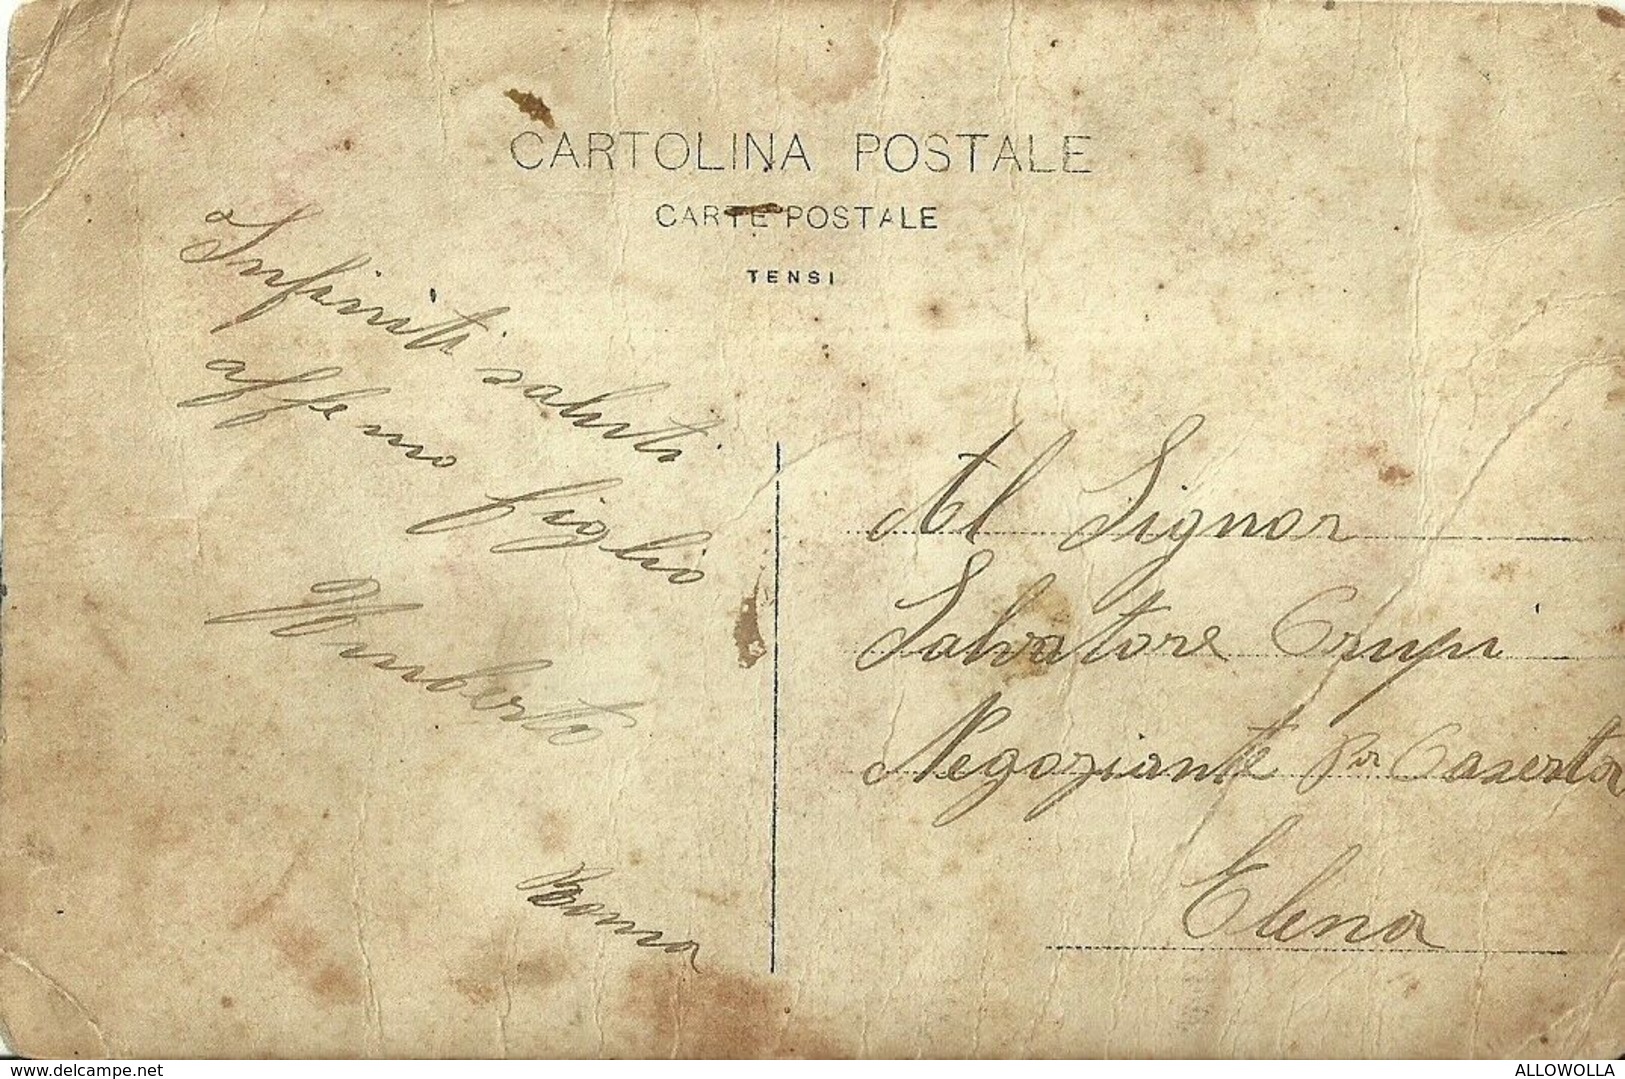 CARTOLINA POSTALE
CARTE POSTALE
TENSI
Infiniti saluti
affemo figlio
Umberto
Roma
Al Signor
Salvatore Crupi
Negoziante Pr Caserta
Elena
www.delcampe.net
ALLOWOLLA